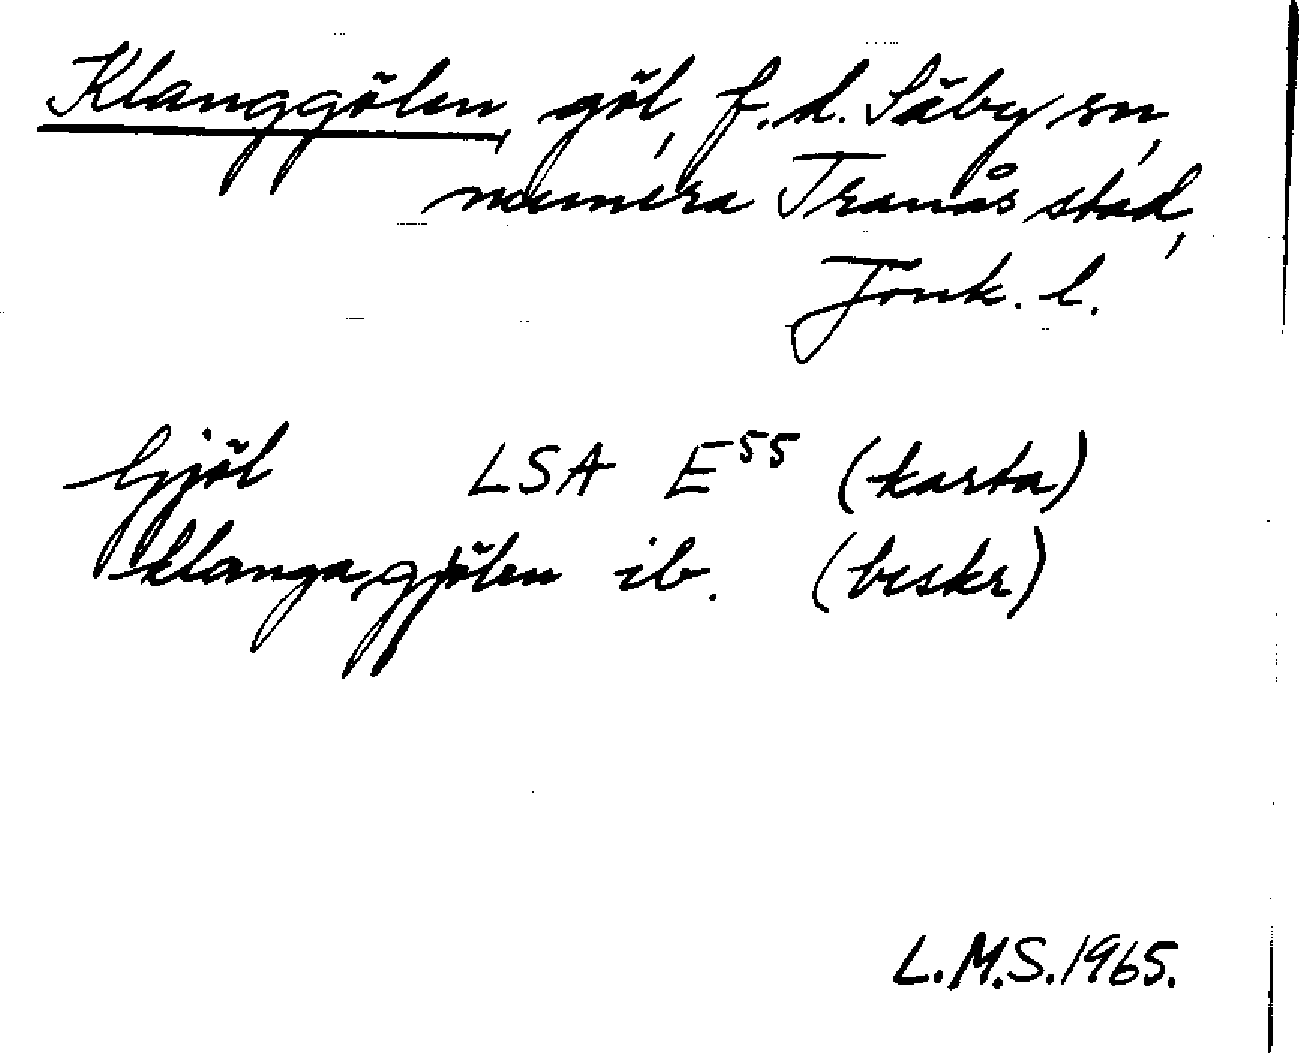 Klanggölen, göl, f.d. Säby sn,
numera Tranås stad,
Jönk. l.
Gjöl LSA E55 (karta)
klangagjölen ib. (beskr)
L.M.S. 1965.